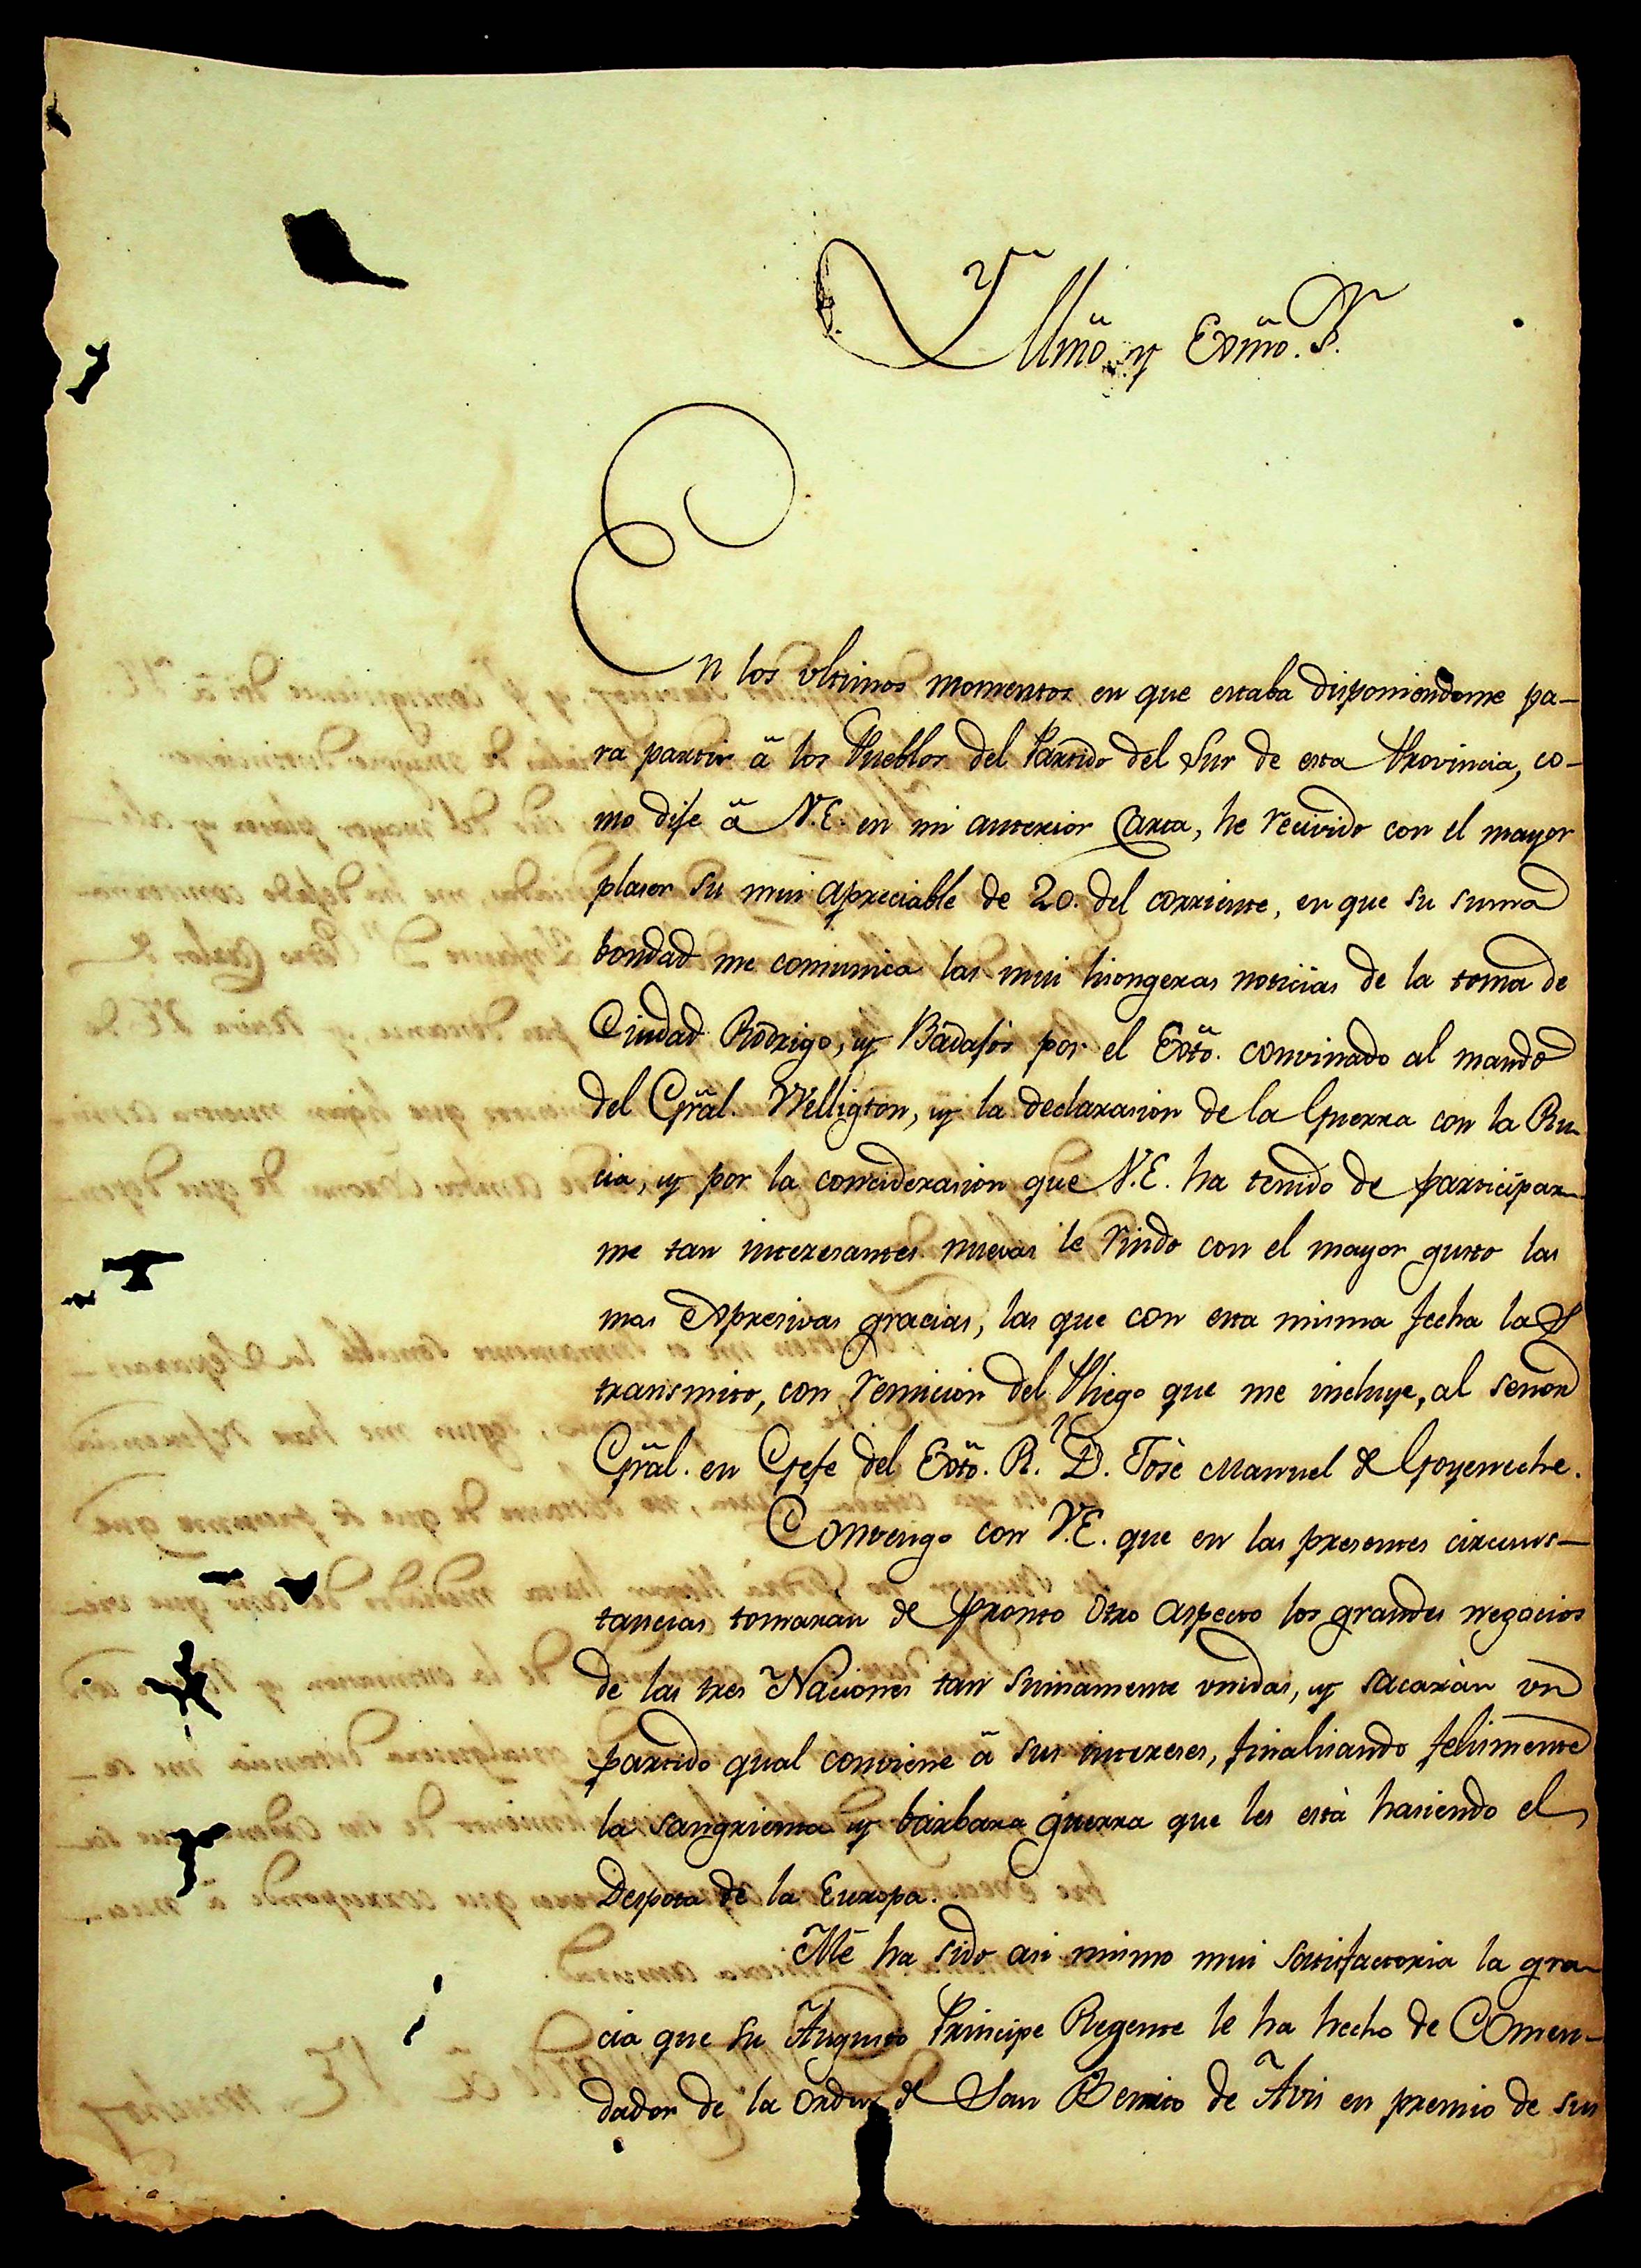 Yllm̃o. y Exm̃o. S.ʳ
En los vltimos momentos en que estaba disponiendome pa-
ra partir ã los Pueblos del Partido del Sur de esta Provincia, co-
mo dije ã V.E. en mi anterior Carta, he recivido con el mayor
plaser su mui apreciable de 20. del corriente, en que su suma
bondad me comunica las mui lisongeras noticias de la toma de
Ciudad Rodrigo, y Badajòs por el Ext̃o. convinado al mando
del Gr̃al. Welligton, y la declarasion de la Guerra con la Ru-
cia, y por la conciderasion que V.E. ha tenido de participar-
me tan interesantes nuevas le rindo con el mayor gusto las
mas expresivas gracias, las que con esta misma fecha las
transmito, con remicion del Pliego que me incluye, al señor
Gr̃al. en Gefe del Ext̃o. R.ˡ D. Josè Manuel de Goyeneche.
Convengo con V.E. que en las presentes circuns-
tancias tomaran de pronto otro aspecto los grandes negocios
de las tres Naciones tan sumamente vnidas, y sacaràn vn
partido qual conviene ã sus intereses, finalisando felismente
la sangrienta y bàrbara guerra que les està hasiendo el
Despota de la Europa.
Me ha sido asi mismo mui satisfactoria la gra-
cia que su Augusto Principe Regente le ha hecho de Comen-
dador de la orden de San Benito de Avis en premio de sus